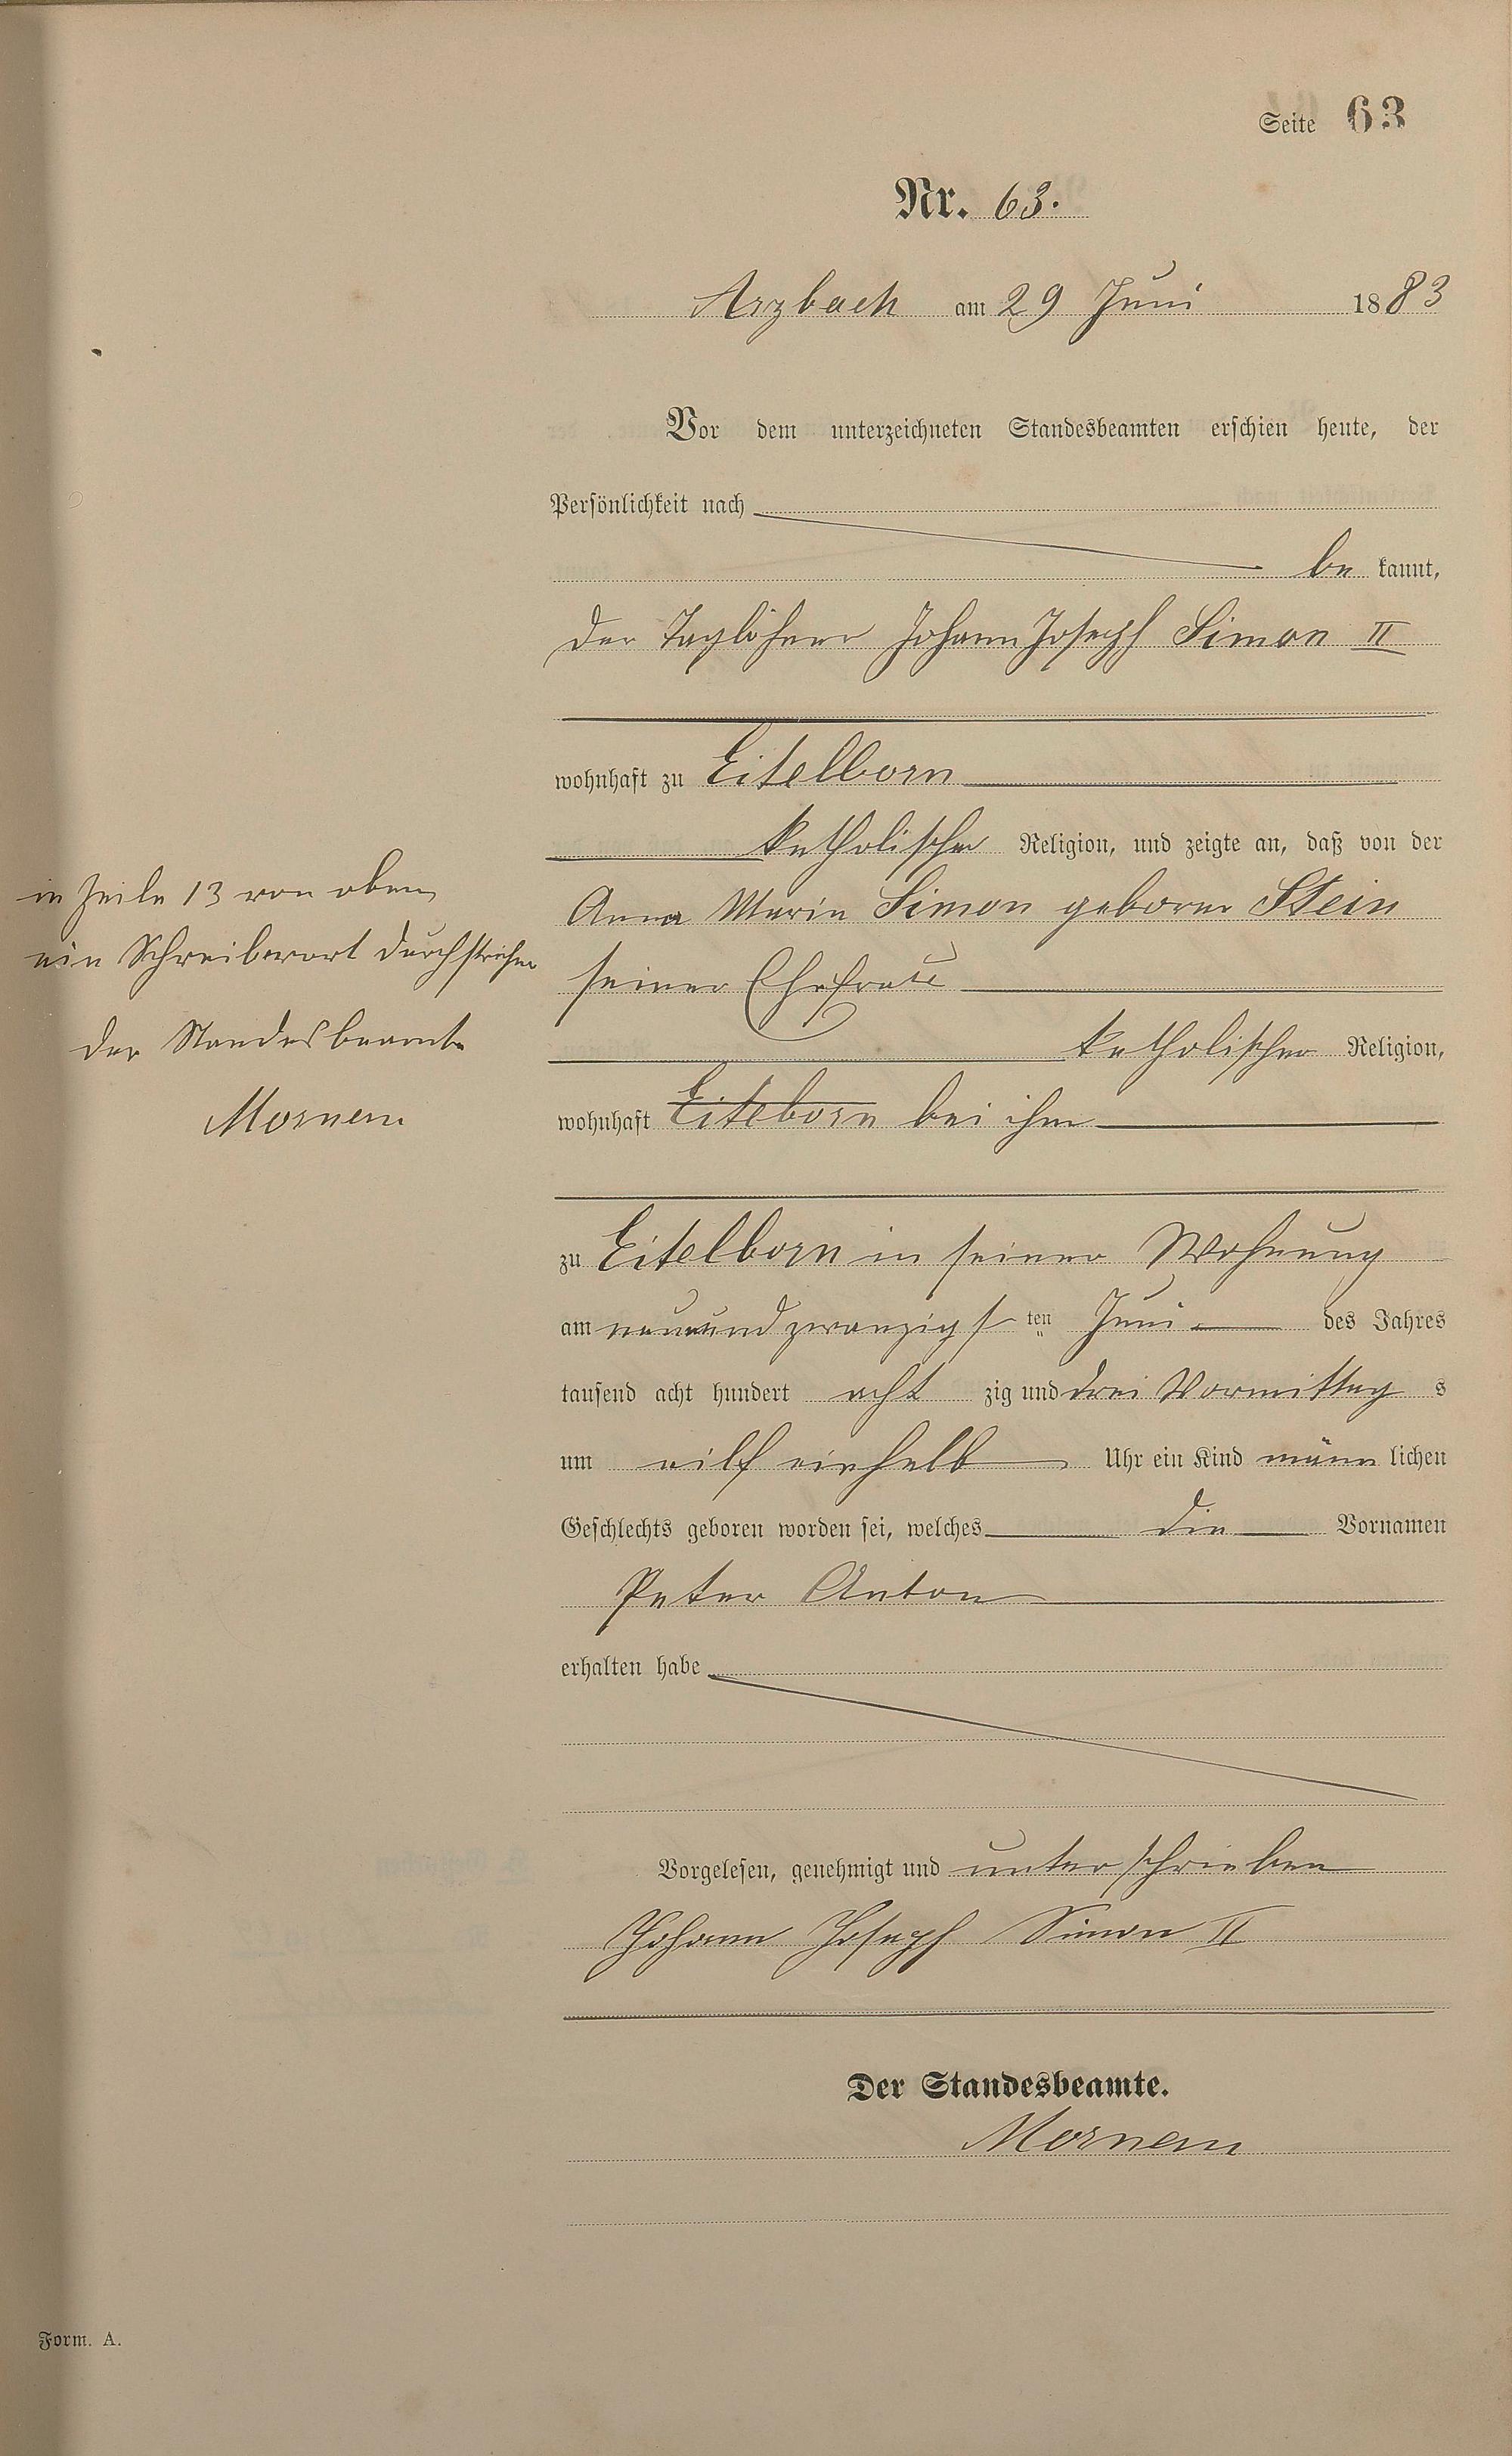 Seite 63
Nr. 63.
Arzbach am 29 Juni 1883
Vor dem unterzeichneten Standesbeamten erschien heute, der
Persönlichkeit nach
be kannt,
der Taglöhner Johann Joseph Simon II
wohnhaft zu Eitelborn
katholischer Religion, und zeigte an, daß von der
Anna Maria Simon geborne Stein
seiner Ehefrau
katholischer Religion,
wohnhaft Eiteborn bei ihm
zu Eitelborn in seiner Wohnung
am neunundzwanzigs ten Juni des Jahres
tausend acht hundert acht zig und drei Vormittag s
um eilf einhalb Uhr ein Kind männ lichen
Geschlechts geboren worden sei, welches die Vornamen
Peter Anton
erhalten habe
Vorgelesen, genehmigt und unterschrieben
Johann Joseph Simon II
Der Standesbeamte.
in Zeile 13 von oben
ein Schreibwort durchstrichen
der Standesbeamte
Form. A.